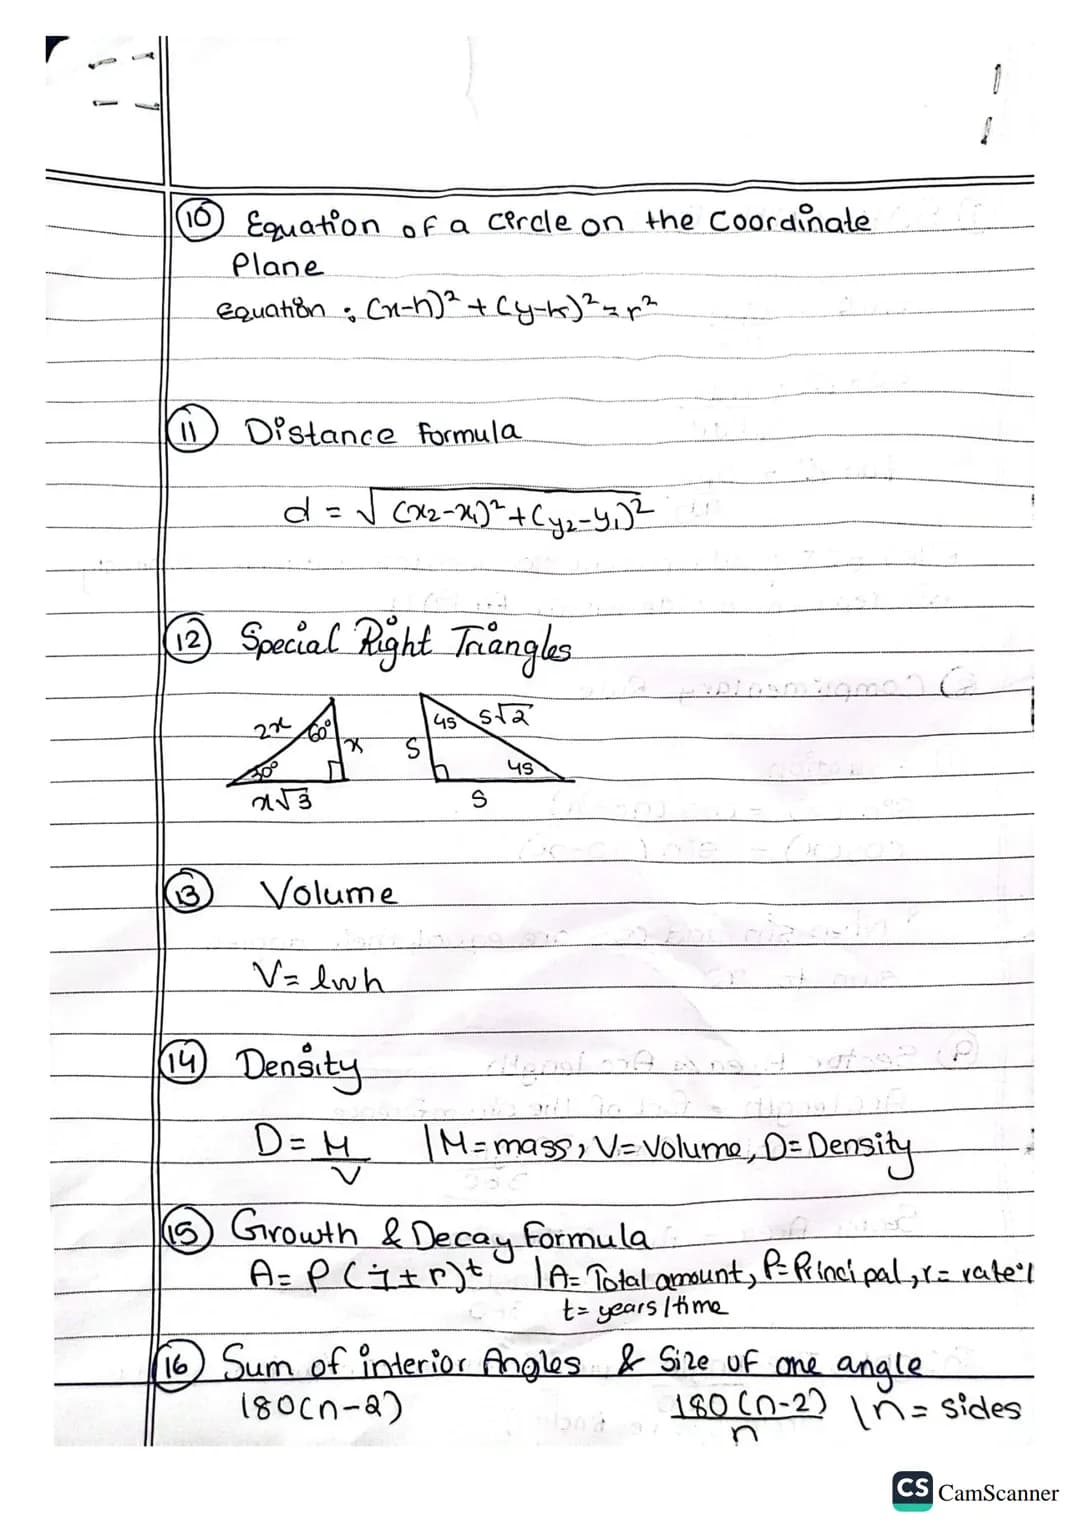 10 Equation of a circle on the Coordinate
Plane
equation : (x-h)² + (y-k)² = r²
11 Distance formula
d = √(x₂-x₁)² + (y₂-y₁)²
12 Special Right Triangles
2x 60° x 30° x√3
45 s√2 S 45 S
13 Volume
V= lwh
14 Density
D = M/V | M = mass, V = Volume, D = Density
15 Growth & Decay formula
A = P(1 ± r)t | A = Total amount, P = Principal, r = rate
t = years/time
16 Sum of interior Angles & Size of one angle
180(n-2) 180(n-2)/n | n = sides
CS CamScanner